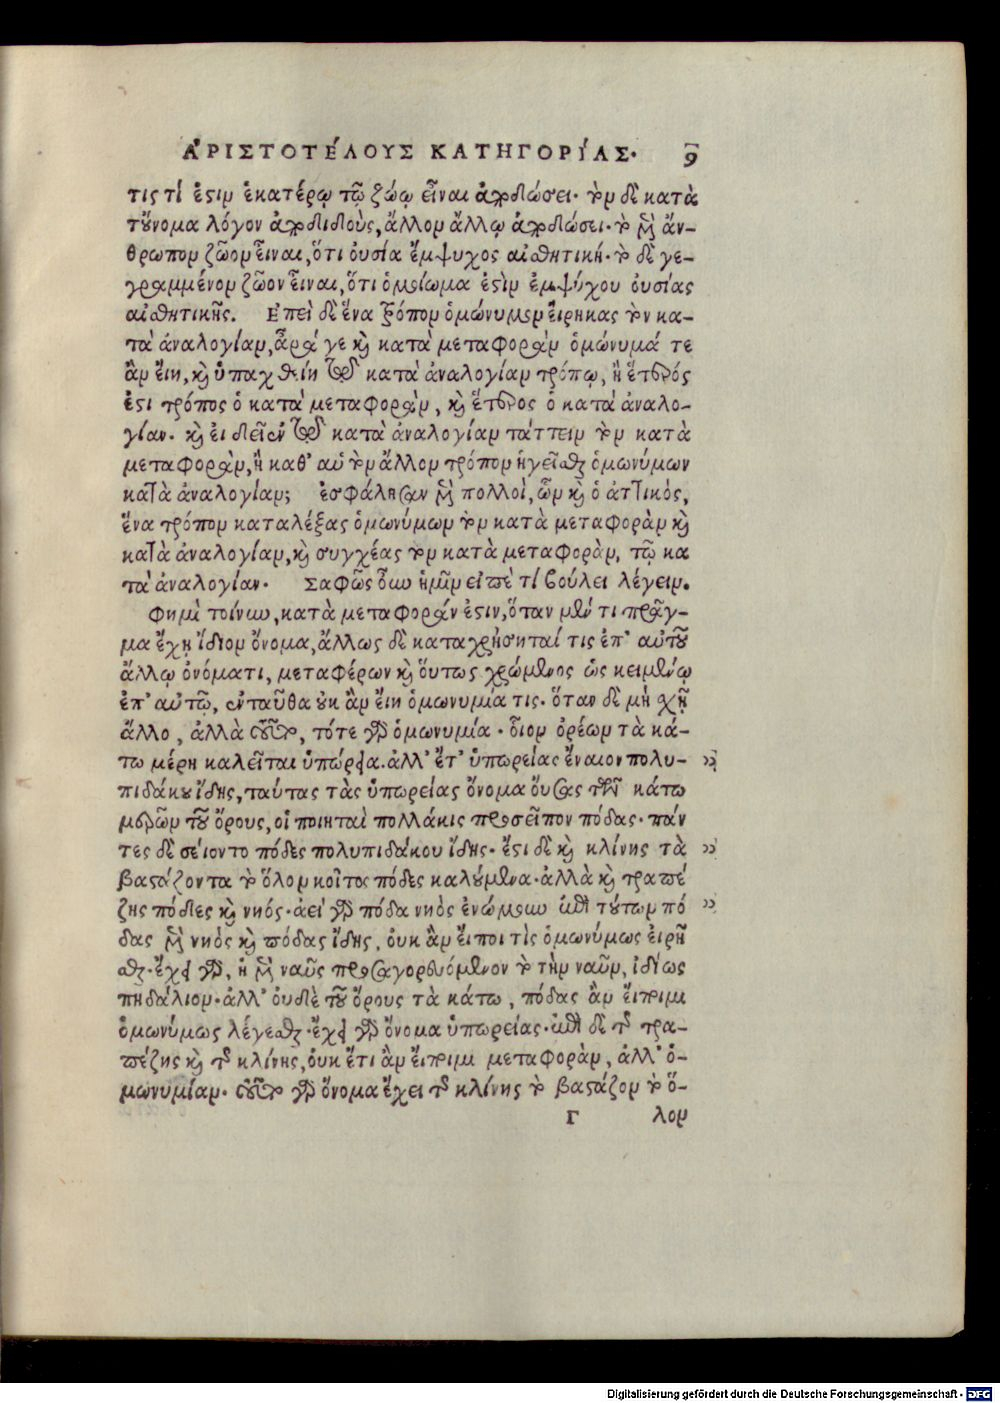 ἈΡΙΣΤΟΤΈΛΟΥΣ ΚΑΤΗΓΟΡΊΑΣ. 9
τις τί ἐστιν ἑκατέρῳ τῷ ζώῳ εἶναι ἀποδώσει. τὸν δὲ κατὰ
τοὔνομα λόγον ἀποδιδοὺς, ἄλλον ἄλλῳ ἀποδώσει. τὸ μὲν ἄν-
θρωπον ζῶον εἶναι, ὅτι οὐσία ἔμψυχος αἰσθητική. τὸ δὲ γε-
γραμμένον ζῶον εἶναι, ὅτι ὁμοίωμα ἐστὶν ἐμψύχου οὐσίας
αἰσθητικῆς. Ἐπεὶ δὲ ἕνα τρόπον ὁμώνυμον εἴρηκας τὸν κα-
τὰ ἀναλογίαν, ἆρά γε καὶ κατὰ μεταφορὰν ὁμώνυμά τε
ἂν εἴη, καὶ ὑπαχθείη τῷ κατὰ ἀναλογίαν τρόπῳ, ἢ ἕτερός
ἐστι τρόπος ὁ κατὰ μεταφορὰν, καὶ ἕτερος ὁ κατὰ ἀναλο-
γίαν. καὶ εἰ δεῖ ἐν τῷ κατὰ ἀναλογίαν τάττειν τὸν κατὰ
μεταφορὰν, ἢ καθ' αὑτὸν ἄλλον τρόπον ἡγεῖσθαι ὁμωνύμων
κατὰ ἀναλογίαν; ἐσφάλησαν μὲν πολλοὶ, ὧν καὶ ὁ ἀττικὸς,
ἕνα τρόπον καταλέξας ὁμωνύμων τὸν κατὰ μεταφορὰν καὶ
κατὰ ἀναλογίαν, καὶ συγχέας τὸν κατὰ μεταφορὰν, τῷ κα
τὰ ἀναλογίαν. Σαφῶς οὖν ἡμῖν εἰπὲ τί βούλει λέγειν.
Φημὶ τοίνυν, κατὰ μεταφοράν ἐστιν, ὅταν μέν τι πρᾶγ-
μα ἔχῃ ἴδιον ὄνομα, ἄλλως δὲ καταχρήσηταί τις ἐπ' αὐτοῦ
ἄλλῳ ὀνόματι, μεταφέρων καὶ οὕτως χρώμενος ὡς κειμένῳ
ἐπ' αὐτῷ, ἐνταῦθα οὐκ ἂν εἴη ὁμωνυμία τις. ὅταν δὲ μὴ ἔχῃ
ἄλλο, ἀλλὰ τοῦτο, τότε γὰρ ὁμωνυμία. οἷον ὀρέων τὰ κά-
τω μέρη καλεῖται ὑπώρεια. ἀλλ' ἔτ' ὑπωρείας ἔναιον πολυ-
πιδάκου ἴδης, ταύτας τὰς ὑπωρείας ὄνομα οὔσας τῶν κάτω
μερῶν τοῦ ὄρους, οἱ ποιηταὶ πολλάκις προσεῖπον πόδας. πάν
τες δὲ σείοντο πόδες πολυπιδάκου ἴδης. ἔστι δὲ καὶ κλίνης τὰ
βαστάζοντα τὸ ὅλον κοῖτος πόδες καλούμενα. ἀλλὰ καὶ τραπέ
ζης πόδες καὶ νηός. ἀεὶ γὰρ πόδα νηὸς ἐνώμων ἐπὶ τούτων πό
δας μὲν νηὸς καὶ πόδας ἴδης, οὐκ ἂν εἴποι τὶς ὁμωνύμως εἰρῆ
σθαι. ἔχει γὰρ, ἡ μὲν ναῦς προσαγορευόμενον τὸ τὴν ναῦν, ἰδίως
πηδάλιον. ἀλλ' οὐδὲ τοῦ ὄρους τὰ κάτω, πόδας ἂν εἴποιμι
ὁμωνύμως λέγεσθαι. ἔχει γὰρ ὄνομα ὑπωρείας. ἐπὶ δὲ τῆς τρα-
πέζης καὶ τῆς κλίνης, οὐκ ἔτι ἂν εἴποιμι μεταφορὰν, ἀλλ' ὁ-
μωνυμίαν. τοῦτο γὰρ ὄνομα ἔχει τῆς κλίνης τὸ βαστάζον τὸ ὅ-
Γ λον
Digitalisierung gefördert durch die Deutsche Forschungsgemeinschaft - DFG